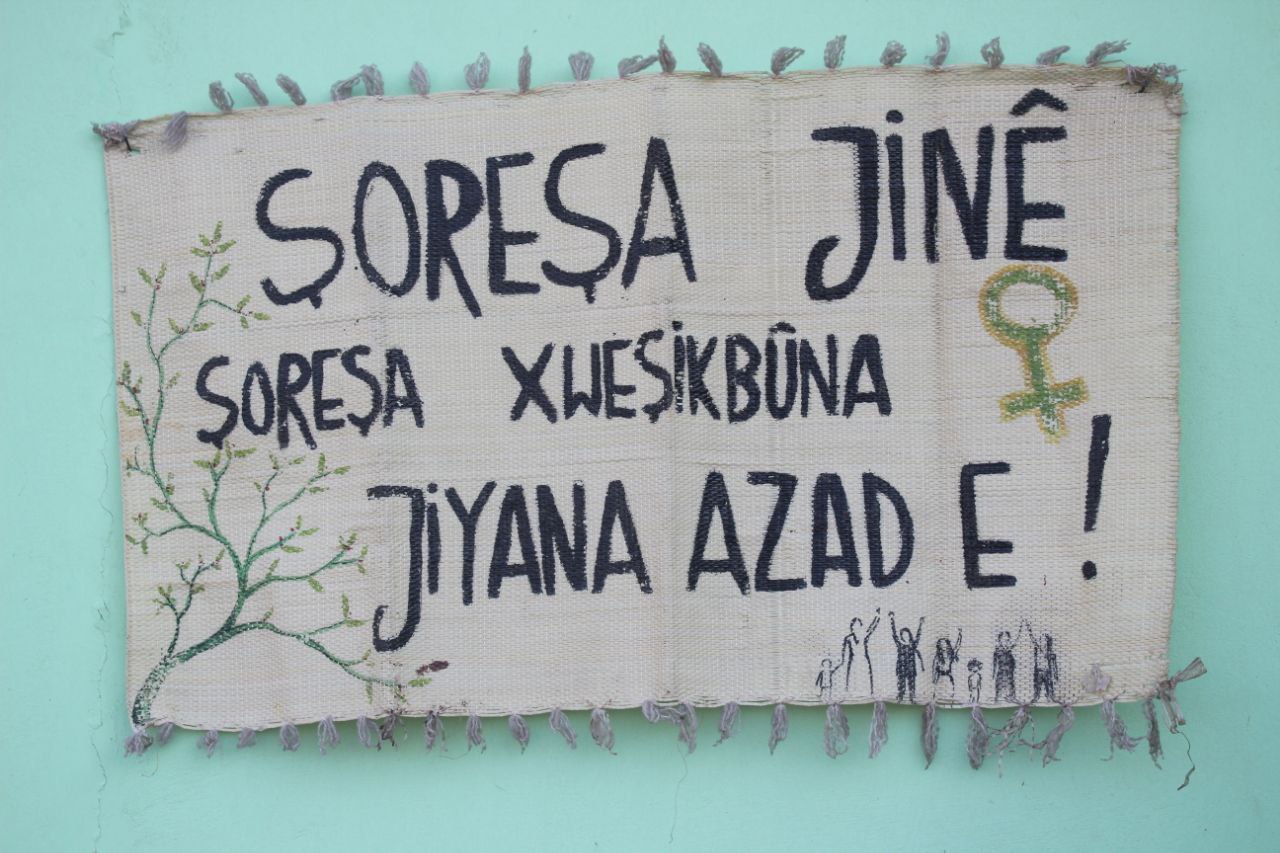 ŞOREŞA JİNÊ
ŞOREŞA XWEŞİKBÛNA
JİYANA AZAD E !